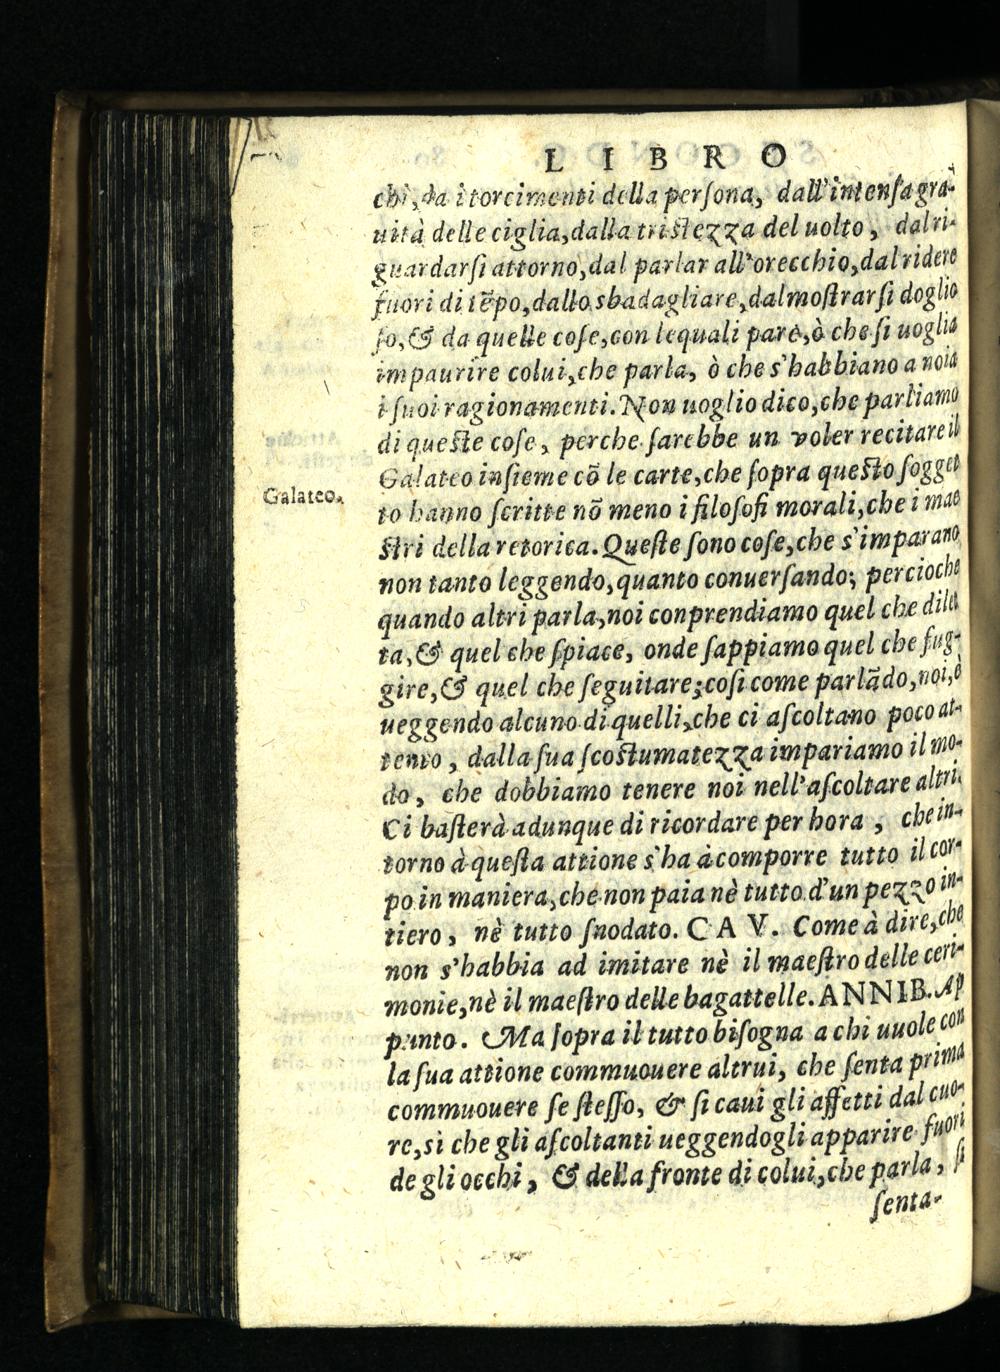 LIBRO
chi, da i torcimenti della persona, dall'intensa gra-
uità delle ciglia, dalla tristezza del uolto, dal ri-
guardarsi attorno, dal parlar all'orecchio, dal ridere
fuori di tẽpo, dallo sbadagliare, dal mostrarsi doglio
so, & da quelle cose, con lequali pare, ò che si uoglia
impaurire colui, che parla, ò che s'habbiano a noia
i suoi ragionamenti. Non uoglio dico, che parliamo
di queste cose, perche sarebbe un voler recitare il
Galateo insieme cõ le carte, che sopra questo sogget
Galateo.
to hanno scritte nõ meno i filosofi morali, che i mae
stri della retorica. Queste sono cose, che s'imparano
non tanto leggendo, quanto conuersando; percioche
quando altri parla, noi conprendiamo quel che dilet
ta, & quel che spiace, onde sappiamo quel che fug-
gire, & quel che seguitare; cosi come parlãdo, noi, è
ueggendo alcuno di quelli, che ci ascoltano poco at-
tento, dalla sua scostumatezza impariamo il mo-
do, che dobbiamo tenere noi nell'ascoltare altri.
Ci basterà adunque di ricordare per hora, che in-
torno à questa attione s'ha à comporre tutto il cor-
po in maniera, che non paia nè tutto d'un pezzo in-
tiero, nè tutto snodato. CAV. Come à dire, che
non s'habbia ad imitare nè il maestro delle ceri-
monie, nè il maestro delle bagattelle. ANNIB. Ap
punto. Ma sopra il tutto bisogna a chi uuole con
la sua attione commuouere altrui, che senta prima
commuouere se stesso, & si caui gli affetti dal cuo-
re, sì che gli ascoltanti ueggendogli apparire fuori
de gli occhi, & della fronte di colui, che parla, si
senta-